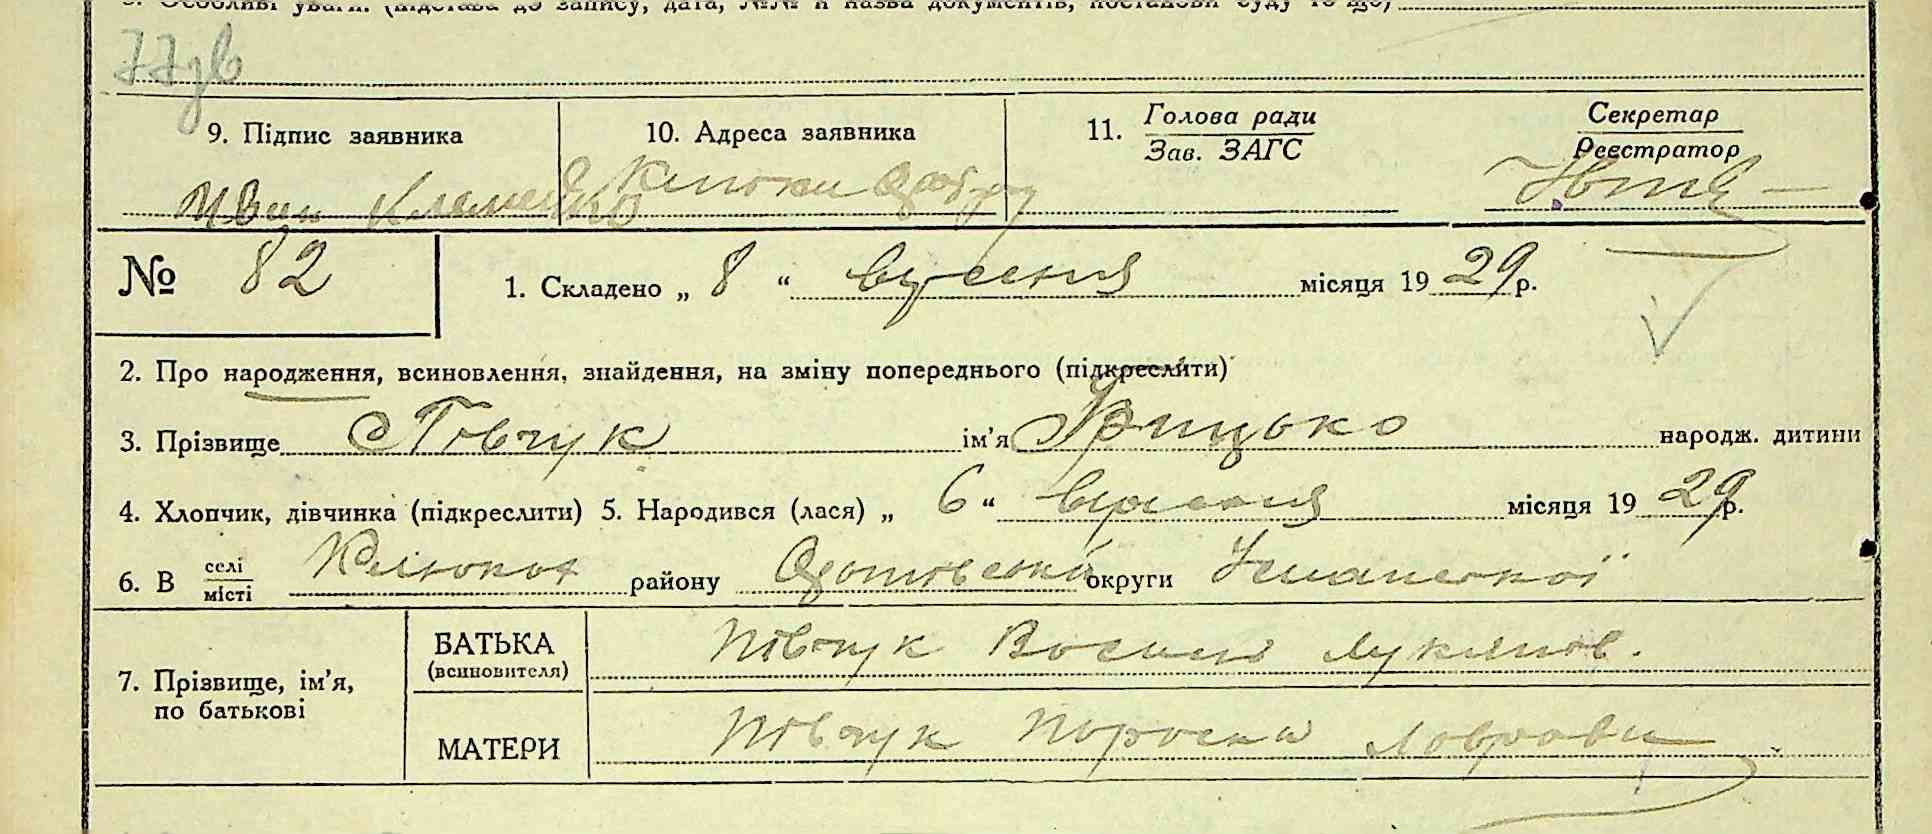 8. Особливі уваги. (підстава до запису, дата, №№ й назва документів, постанови суду то-що)
9. Підпис заявника 10. Адреса заявника 11. Голова ради Секретар
Зав. ЗАГС Реєстратор
Иван
№ 82 1. Складено „ 8 “ вересня місяця 1929 р.
2. Про народження, всиновлення, знайдення, на зміну попереднього (підкреслити)
3. Прізвище Півчук ім’я Грицько народж. дитини
4. Хлопчик, дівчинка (підкреслити) 5. Народився (лася) „ 6 “ вересня місяця 1929 р.
6. В селі району округи Уманської
місті
7. Прізвище, ім’я, по батькові БАТЬКА (всиновителя) Півчук Василь Лукянов.
МАТЕРИ Півчук Пораска